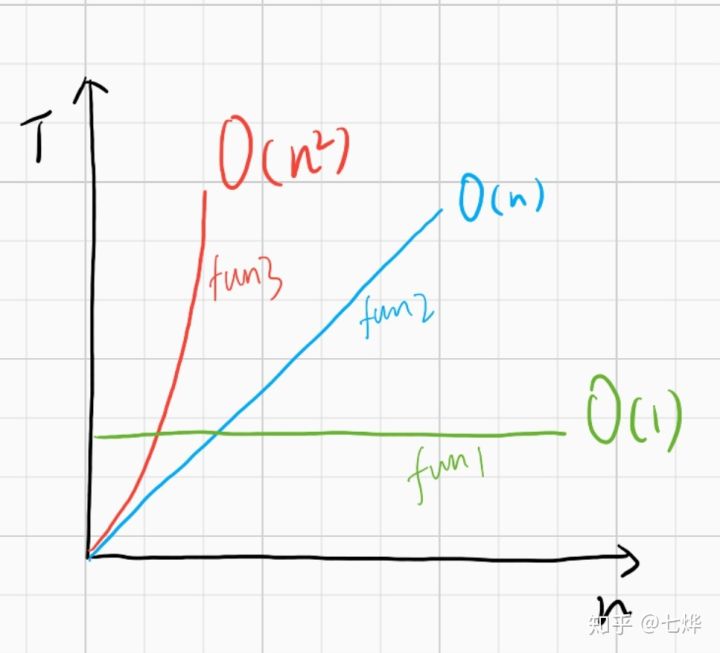 T
O(n²)
O(n)
fun3
fun2
O(1)
fun1
n
知乎 @七烨